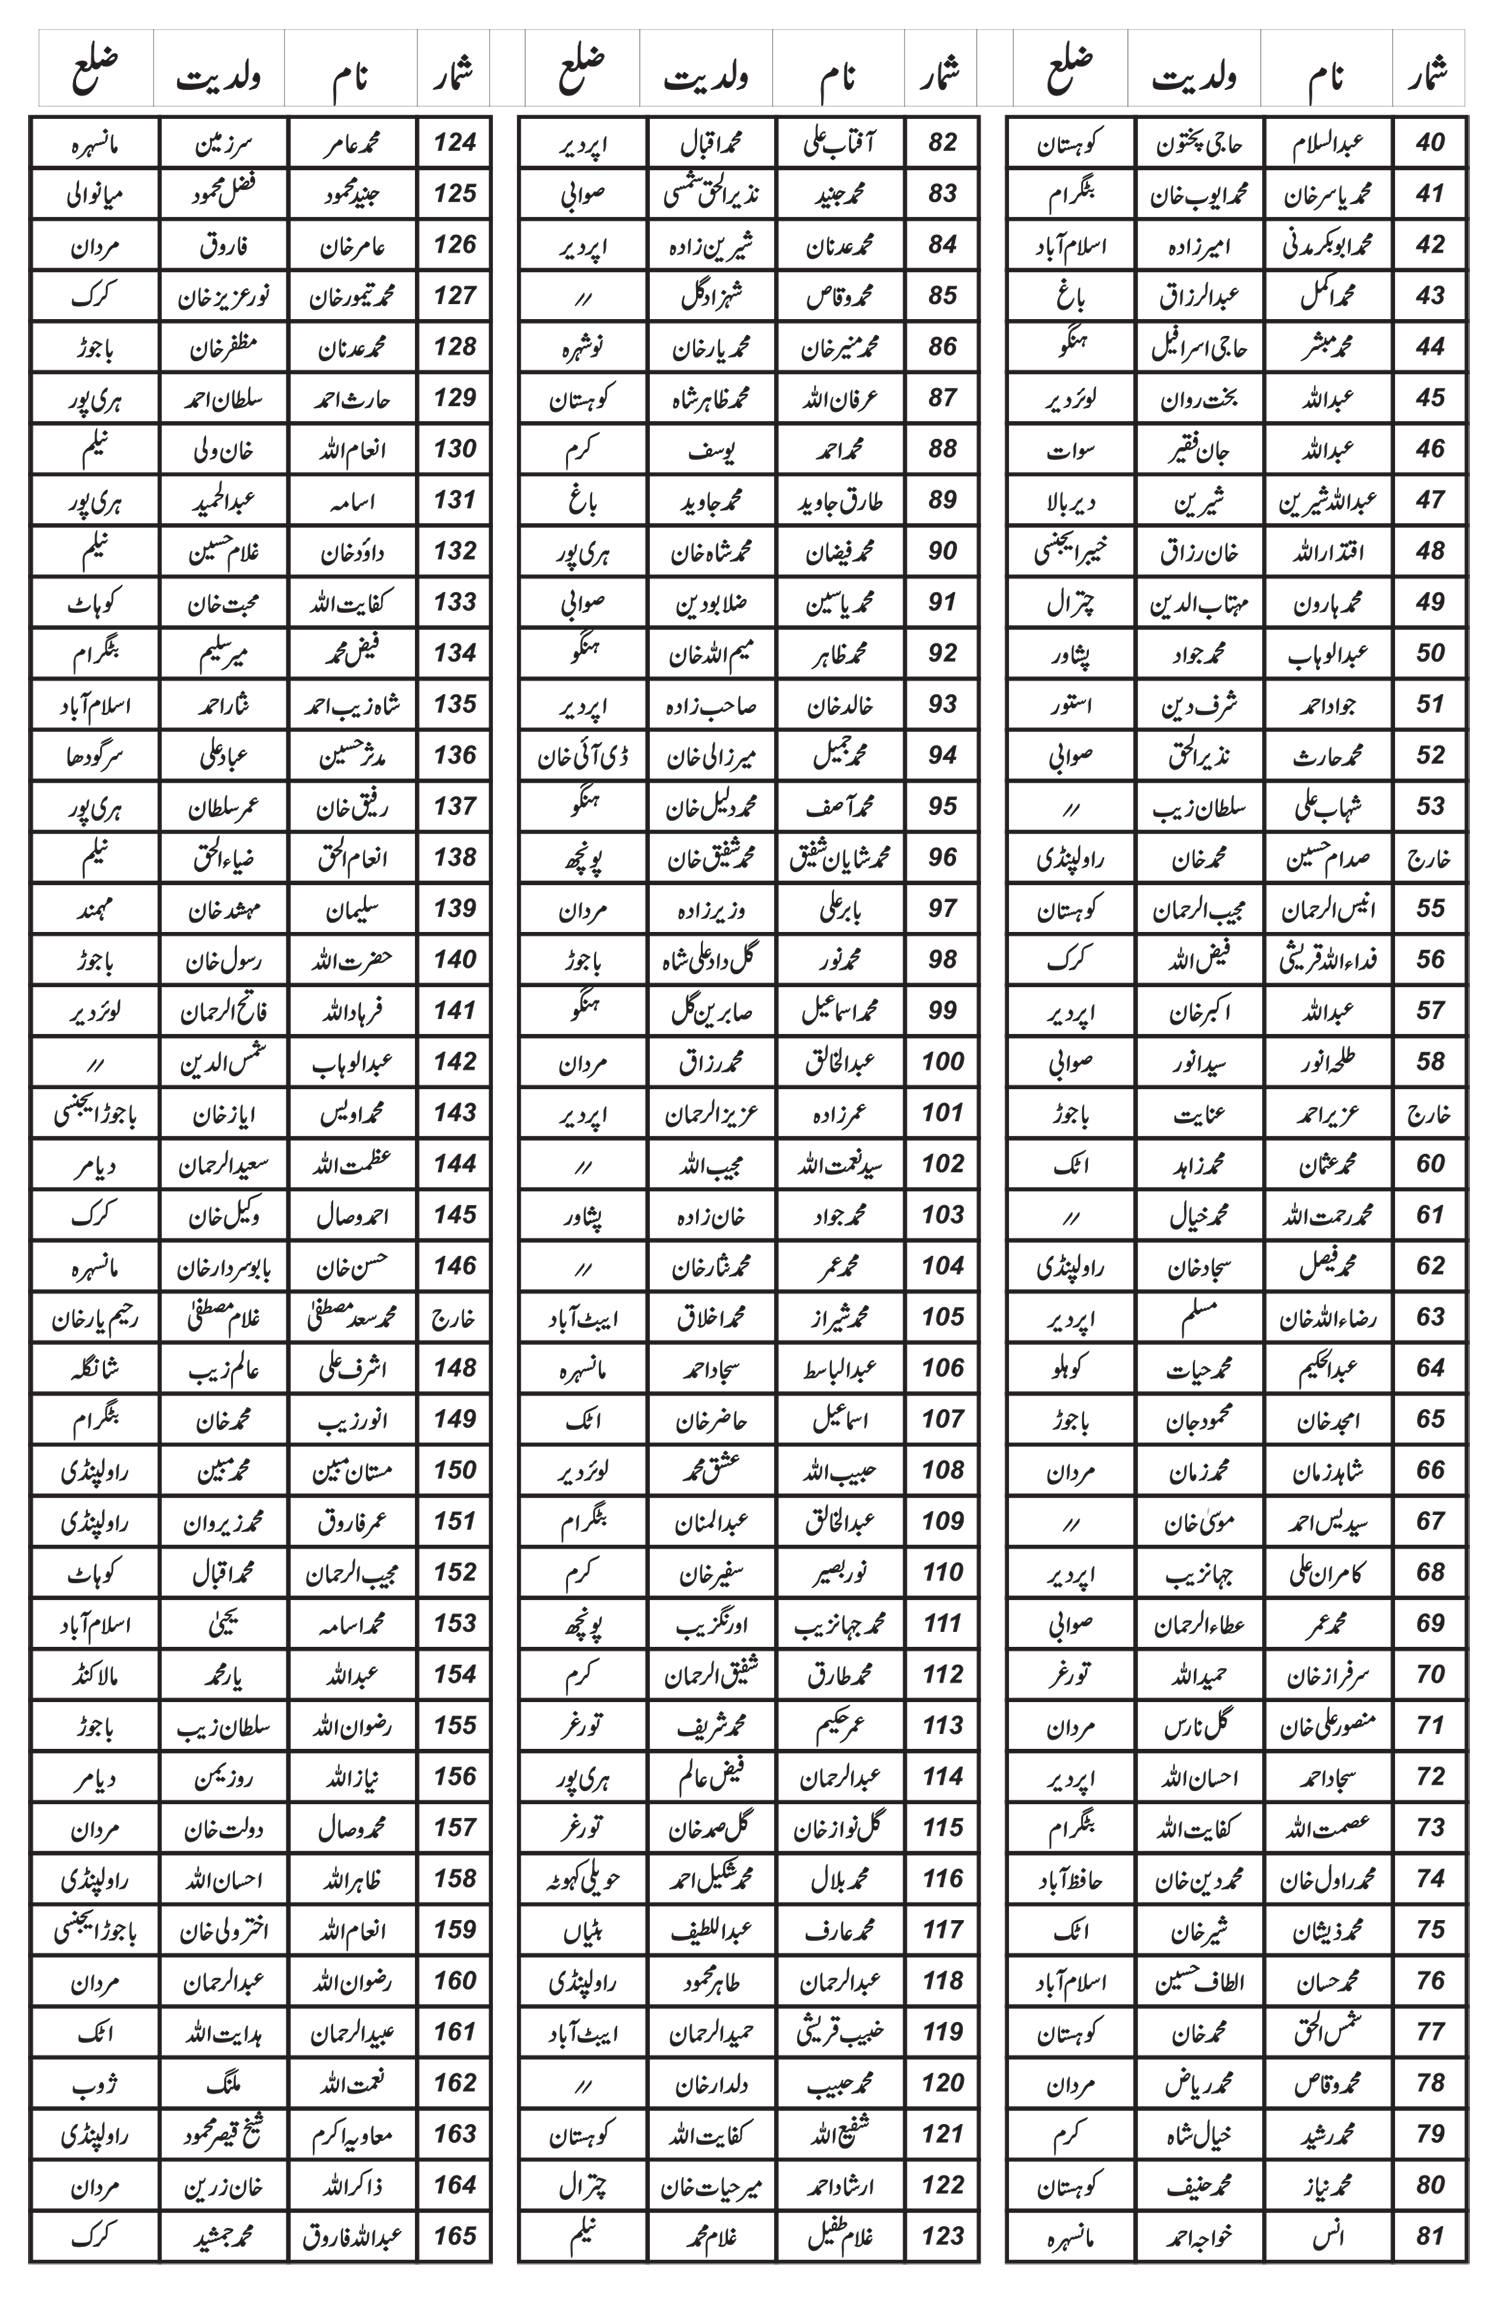 شمار نام ولدیت ضلع
40 عبدالسلام حاجی پختون کوہستان
41 محمد یاسر خان محمد ایوب خان بٹگرام
42 محمد ابوبکر مدنی امیر زادہ اسلام آباد
43 محمد اکمل عبدالرزاق باغ
44 محمد مبشر حاجی اسرافیل ہنگو
45 عبداللہ بخت روان لوئر دیر
46 عبداللہ جان فقیر سوات
47 عبداللہ شیرین شیرین دیر بالا
48 اقتدار اللہ خان رزاق خیبر ایجنسی
49 محمد ہارون مہتاب الدین چترال
50 عبدالوہاب محمد جواد پشاور
51 جواد احمد شرف دین استور
52 محمد حارث نذیر الحق صوابی
53 شہاب علی سلطان زیب //
خارج صدام حسین محمد خان راولپنڈی
55 انیس الرحمان مجیب الرحمان کوہستان
56 فداء اللہ قریشی فیض اللہ کرک
57 عبداللہ اکبر خان اپر دیر
58 طلحہ انور سید انور صوابی
خارج عزیر احمد عنایت باجوڑ
60 محمد عثمان محمد زاہد اٹک
61 محمد رحمت اللہ محمد خیال //
62 محمد فیصل سجاد خان راولپنڈی
63 رضاء اللہ خان مسلم اپر دیر
64 عبدالحکیم محمد حیات کوہلو
65 امجد خان محمود جان باجوڑ
66 شاہد زمان محمد زمان مردان
67 سید یس احمد موسیٰ خان //
68 کامران علی جہانزیب اپر دیر
69 محمد عمر عطاء الرحمان صوابی
70 سرفراز خان حمید اللہ تورغر
71 منصور علی خان گل نارس مردان
72 سجاد احمد احسان اللہ اپر دیر
73 عصمت اللہ کفایت اللہ بٹگرام
74 محمد راول خان محمد دین خان حافظ آباد
75 محمد ذیشان شیر خان اٹک
76 محمد حسان الطاف حسین اسلام آباد
77 شمس الحق محمد خان کوہستان
78 محمد وقاص محمد ریاض مردان
79 محمد رشید خیال شاہ کرم
80 محمد نیاز محمد حنیف کوہستان
81 انس خواجہ احمد مانسہرہ
شمار نام ولدیت ضلع
82 آفتاب علی محمد اقبال اپر دیر
83 محمد جنید نذیر الحق شمسی صوابی
84 محمد عدنان شیرین زادہ اپر دیر
85 محمد وقاص شہزاد گل //
86 محمد منیر خان محمد یار خان نوشہرہ
87 عرفان اللہ محمد ظاہر شاہ کوہستان
88 محمد احمد یوسف کرم
89 طارق جاوید محمد جاوید باغ
90 محمد فیضان محمد شاہ خان ہری پور
91 محمد یاسین ضلابودین صوابی
92 محمد ظاہر میم اللہ خان ہنگو
93 خالد خان صاحب زادہ اپر دیر
94 محمد جمیل میرزالی خان ڈی آئی خان
95 محمد آصف محمد دلیل خان ہنگو
96 محمد شایان شفیق محمد شفیق خان پونچھ
97 بابر علی وزیر زادہ مردان
98 محمد نور گل داد علی شاہ باجوڑ
99 محمد اسماعیل صابرین گل ہنگو
100 عبدالخالق محمد رزاق مردان
101 عمر زادہ عزیز الرحمان اپر دیر
102 سید نعمت اللہ مجیب اللہ //
103 محمد جواد خان زادہ پشاور
104 محمد عمر محمد نثار خان //
105 محمد شیراز محمد اخلاق ایبٹ آباد
106 عبدالباسط سجاد احمد مانسہرہ
107 اسماعیل حاضر خان اٹک
108 حبیب اللہ عشق محمد لوئر دیر
109 عبدالخالق عبدالمنان بٹگرام
110 نور بصیر سفیر خان کرم
111 محمد جہانزیب اورنگزیب پونچھ
112 محمد طارق شفیق الرحمان کرم
113 عمر حکیم محمد شریف تورغر
114 عبدالرحمان فیض عالم ہری پور
115 گل نواز خان گل صمد خان تورغر
116 محمد بلال محمد شکیل احمد حویلی کہوٹہ
117 محمد عارف عبداللطیف ہٹیاں
118 عبدالرحمان طاہر محمود راولپنڈی
119 خبیب قریشی حمید الرحمان ایبٹ آباد
120 محمد حبیب دلدار خان //
121 شفیع اللہ کفایت اللہ کوہستان
122 ارشاد احمد میر حیات خان چترال
123 غلام طفیل غلام محمد نیلم
شمار نام ولدیت ضلع
124 محمد عامر سرزمین مانسہرہ
125 جنید محمود فضل محمود میانوالی
126 عامر خان فاروق مردان
127 محمد تیمور خان نور عزیز خان کرک
128 محمد عدنان مظفر خان باجوڑ
129 حارث احمد سلطان احمد ہری پور
130 انعام اللہ خان ولی نیلم
131 اسامہ عبدالحمید ہری پور
132 داؤد خان غلام حسین نیلم
133 کفایت اللہ محبت خان کوہاٹ
134 فیض محمد میر سلیم بٹگرام
135 شاہ زیب احمد نثار احمد اسلام آباد
136 مدثر حسین عباد علی سرگودھا
137 رفیق خان عمر سلطان ہری پور
138 انعام الحق ضیاء الحق نیلم
139 سلیمان مہشد خان مہمند
140 حضرت اللہ رسول خان باجوڑ
141 فرہاد اللہ فاتح الرحمان لوئر دیر
142 عبدالوہاب شمس الدین //
143 محمد اویس ایاز خان باجوڑ ایجنسی
144 عظمت اللہ سعید الرحمان دیامر
145 احمد وصال وکیل خان کرک
146 حسن خان بابو سردار خان مانسہرہ
خارج محمد سعد مصطفیٰ غلام مصطفیٰ رحیم یار خان
148 اشرف علی عالم زیب شانگلہ
149 انور زیب محمد خان بٹگرام
150 مستان مبین محمد مبین راولپنڈی
151 عمر فاروق محمد زیروان راولپنڈی
152 مجیب الرحمان محمد اقبال کوہاٹ
153 محمد اسامہ یحییٰ اسلام آباد
154 عبداللہ یار محمد مالاکنڈ
155 رضوان اللہ سلطان زیب باجوڑ
156 نیاز اللہ روزیمن دیامر
157 محمد وصال دولت خان مردان
158 ظاہر اللہ احسان اللہ راولپنڈی
159 انعام اللہ اختر ولی خان باجوڑ ایجنسی
160 رضوان اللہ عبدالرحمان مردان
161 عبید الرحمان ہدایت اللہ اٹک
162 نعمت اللہ ملنگ ژوب
163 معاویہ اکرم شیخ قیصر محمود راولپنڈی
164 ذاکر اللہ خان زرین مردان
165 عبداللہ فاروق محمد جمشید کرک